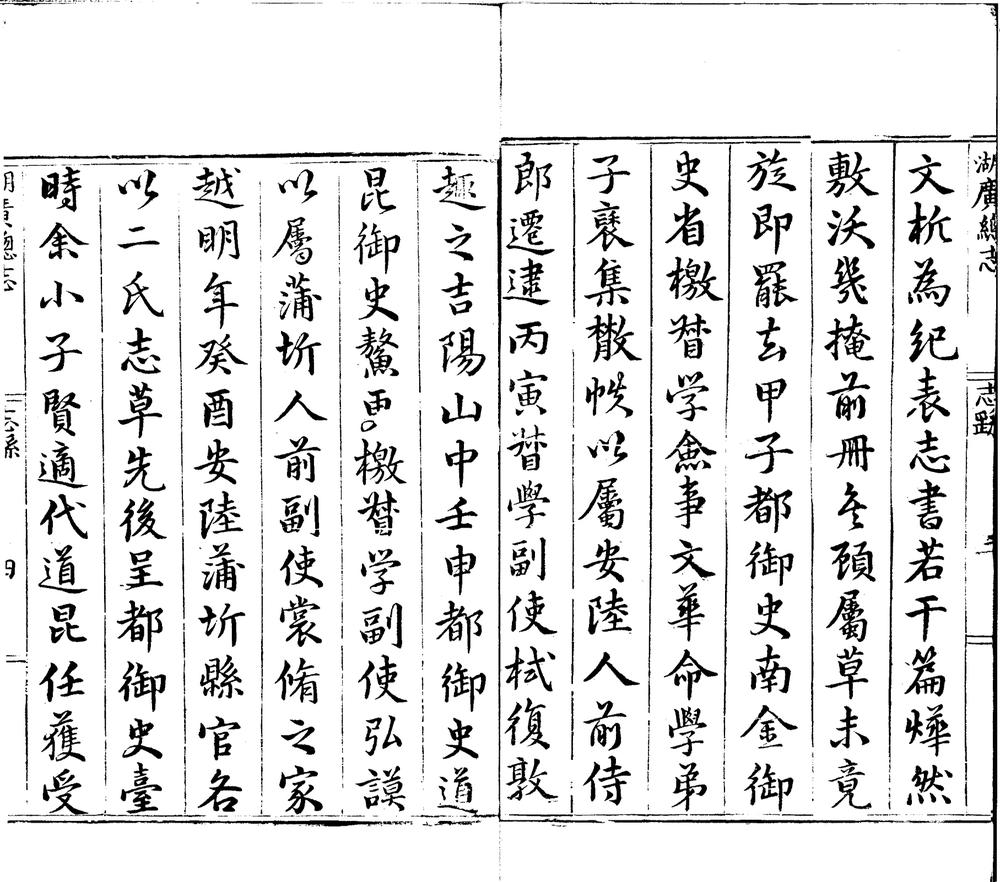 湖廣總志
文析為紀表志書若干篇燁然
敷沃幾掩前冊矣顾屬草未竟
旋即罷去甲子都御史南金御
史省檄督学僉事文華命學弟
子裒集散帙以屬安陸人前侍
郎遷逮丙寅督學副使栻復敦
趣之吉陽山中壬申都御史道
昆御史鰲更檄督学副使弘謨
以屬蒲圻人前副使裳脩之家
越明年癸酉安陸蒲圻縣官各
以二氏志草先後呈都御史臺
時余小子賢適代道昆任獲受
湖廣總志 四